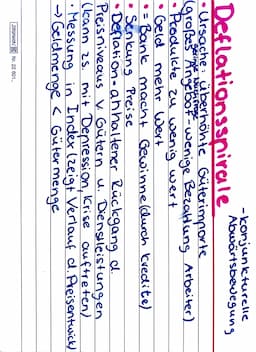 Deflationsspirale
- konjunkturelle
Abwärtsbewegung
• Ursache: überhöhte Güterimporte
(Großes Angebot - wenige Bezahlung Arbeiter)
• Produkte zu wenig wert
• Geld mehr Wert
• = Bank macht Gewinne (durch Kredite)
• Senkung Preise
• Deflation: anhaltener Rückgang d.
Preisniveaus v. Gütern u. Dienstleistungen
(kann zs. mit Depression, Krise auftreten)
• Messung in Index (zeigt Verlauf d. Preisentwickl.)
→ Geldmenge < Gütermenge